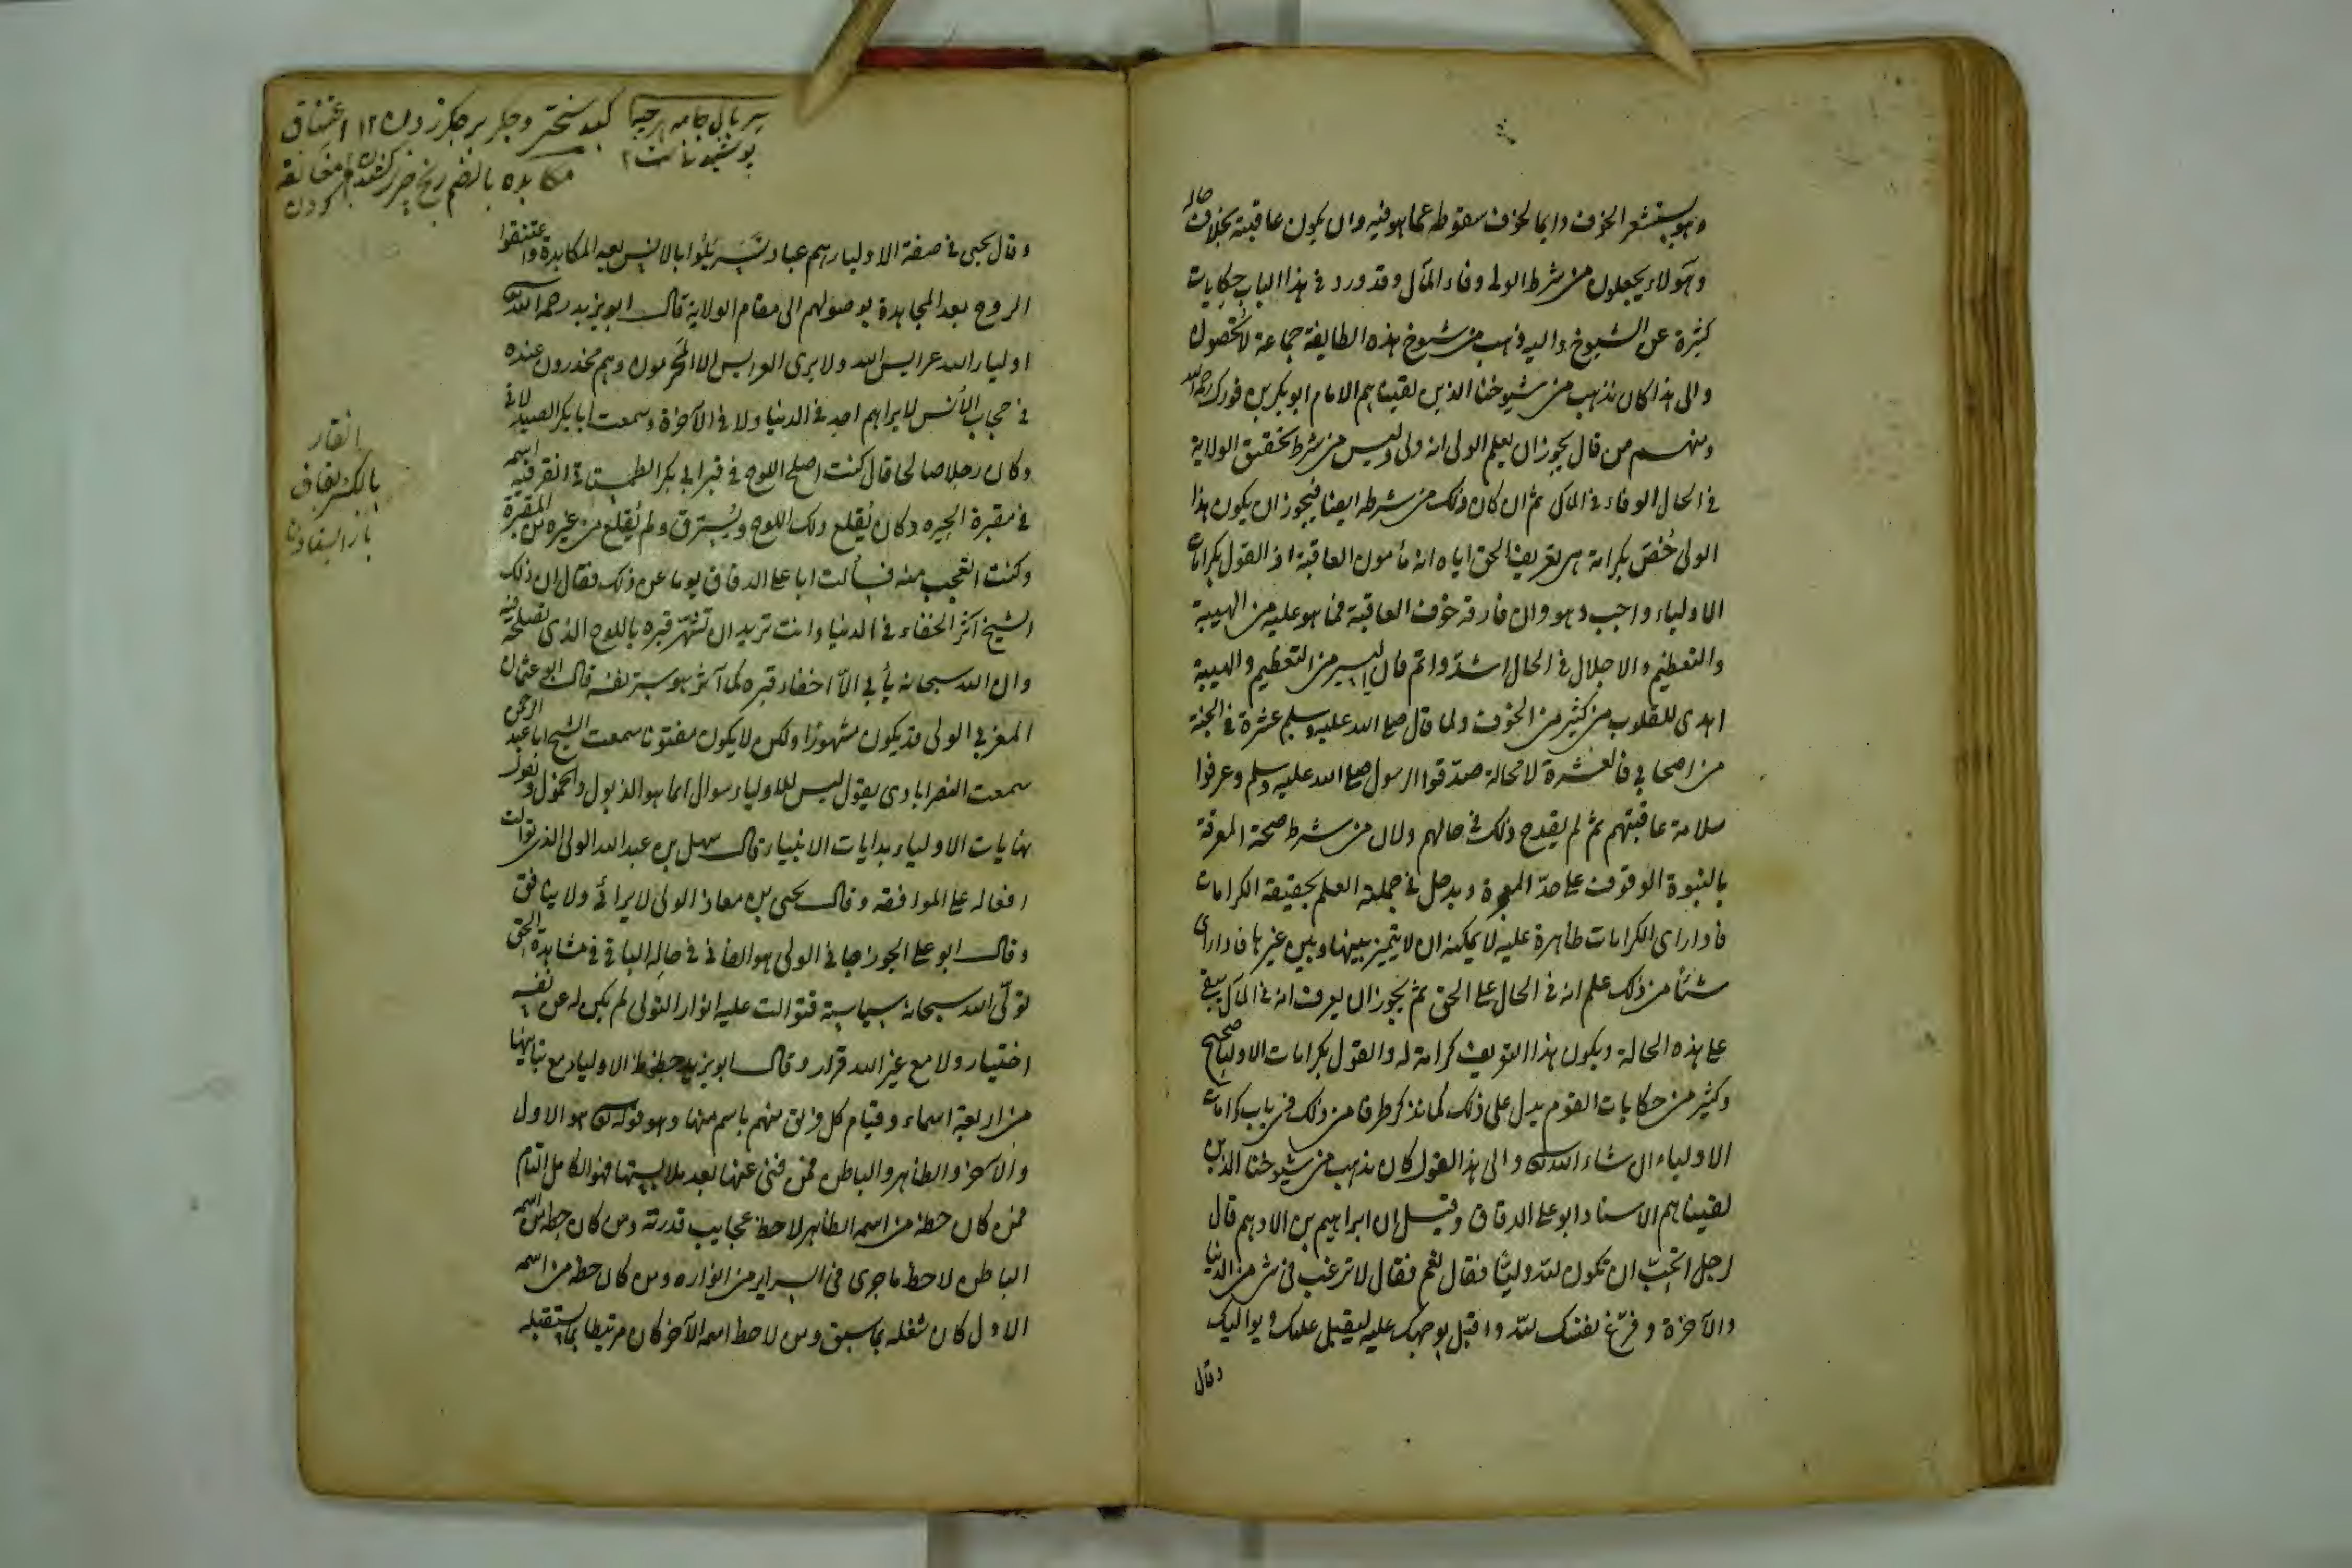 وهو يستشعر الخوف دايما لخوف سقوطه عما هو فيه وان يكون عاقبته بخلاف حاله
وهؤلاء يجعلون من شرط الولى وفاء المآل وقد ورد فى هذا الباب حكايات
كثيرة عن الشيوخ واليه ذهب من شيوخ هذه الطايفة جماعة لا يحصون
والى هذا كان يذهب من شيوخنا الذين لقيناهم الامام ابو بكر بن فورك رحمه الله
ومنهم من قال يجوز ان يعلم الولى انه ولى وليس من شرط تحقيق الولاية
فى الحال الوفاء فى المآل ثم ان كان ذلك من شرطه ايضا فيجوز ان يكون هذا
الولى خُصّ بكرامة هى تعريف الحق اياه انه مأمون العاقبة اذ القول بكرامات
الاولياء واجب وهو وان فارقه خوف العاقبة فما هو عليه من الهيبة
والتعظيم والاجلال فى الحال اشدّ واتم فان اليسير من التعظيم والهيبة
اهدى للقلوب من كثير من الخوف ولما قال صلى الله عليه وسلم عشرة فى الجنة
من اصحابى فالعشرة لا محالة صدّقوا الرسول صلى الله عليه وسلم وعرفوا
سلامة عاقبتهم ثم لم يقدح ذلك فى حالهم ولان من شرط صحة المعرفة
بالنبوة الوقوف على حدّ المعجزة ويدخل فى جملته العلم بحقيقة الكرامات
فاذا راى الكرامات ظاهرة عليه لا يمكنه ان لا يتميز بينها وبين غيرها فاذا راى
شيئا من ذلك علم انه فى الحال على الحق ثم يجوز ان يعرف انه فى المآل يبقى
على هذه الحالة ويكون هذا التعريف كرامة له والقول بكرامات الاولياء صحيح
وكثير من حكايات القوم يدل على ذلك كما نذكر طرفا من ذلك فى باب كرامات
الاولياء ان شاء الله تعالى والى هذا القول كان يذهب من شيوخنا الذين
لقيناهم الاستاد ابو على الدقاق وقيل ان ابراهيم بن الادهم قال
لرجل اتحبّ ان تكون لله وليّا فقال نعم فقال لا ترغب فى شئ من الدنيا
والآخرة وفرّغ نفسك لله واقبل بوجهك عليه ليقبل عليك ويواليك
وقال
سربال جامه هرچه
پوشیدنی است ۱۲
اعتناق
مكابده بالضم رنج چیزی کشیدن
وقال يحيى فى صفة الاولياء هم عباد تسربلوا بالانس بعد المكابدة واعتنقوا
الروح بعد المجاهدة بوصولهم الى مقام الولاية قال ابو يزيد رحمه الله
اولياء الله عرايس الله ولا يرى العرايس الا المَحرمون وهم مخدرون عنده
فى حجاب الأنس لا يراهم احد فى الدنيا ولا فى الآخرة وسمعت ابا بكر الصيدلانى
وكان رجلا صالحا قال كنت اصلح اللوح فى قبر ابى بكر الطمستانى انقر فيه اسمه
فى مقبرة الحيره وكان يُقلع ذلك اللوح ويُسترق ولم يُقلع من غيره من المقبرة
وكنت اتعجب منه فسألت ابا على الدقاق يوما عن ذلك فقال ان ذلك
الشيخ آثر الخفاء فى الدنيا وانت تريد ان تشهّر قبره باللوح الذى تصلحه فيه
وان الله سبحانه يأبى الاّ اخفاء قبره كما آثر هو ستر نفسه قال ابو عثمان
المغربى الولى قد يكون مشهورًا ولكن لا يكون مفتونا سمعت الشيخ ابا عبد الرحمن
سمعت النصرابادى يقول ليس للاولياء سوال انما هو الذبول والخمول وبقول
نهايات الاولياء بدايات الانبياء قال سهل بن عبد الله الولى الذى توالت
افعاله على الموافقة وقال يحيى بن معاذ الولى لا يرائى ولا ينافق
وقال ابو على الجوزجانى الولى هو الفانى فى حاله الباقى فى مشاهدة الحق
تولّى الله سبحانه سياسته فتوالت عليه انوار التولى لم يكن له عن نفسه
اختيار ولا مع غير الله قرار وقال ابو يزيد حظوظ الاولياء مع تباينها
من اربعة اسماء وقيام كل فريق منهم باسم منها وهو قوله تعالى هو الاول
والآخر والظاهر والباطن فمن فنى عنها بعد ملابستها فهو الكامل التام
فمن كان حظه من اسمه الظاهر لاحظ عجايب قدرته ومن كان حظه من اسمه
الباطن لاحظ ما جرى فى السراير من انواره ومن كان حظه من اسمه
الاول كان شغله بما سبق ومن لاحظ اسمه الآخر كان مرتبطا بما يستقبله